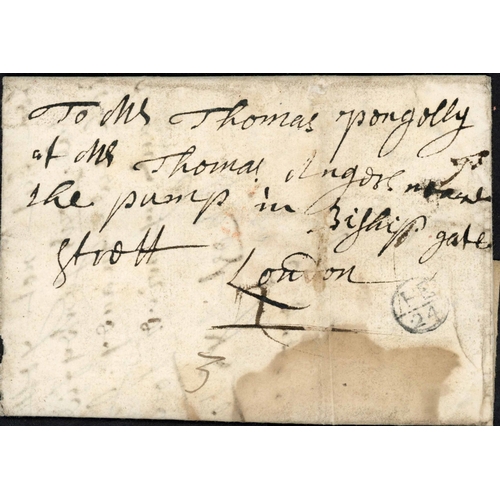 To Mr Thomas pongelly
at Mr Thomas Angers neare
the pump in Biships gate
streett
London
3
24